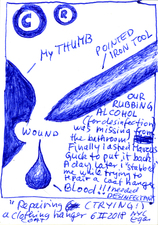 C R
MY THUMB
POINTED
IRON TOOL
OUR
RUBBING
ALCOHOL
(for desinfection)
was missing from
the bathroom
Finally I asked
Quick to put it back
A day later I stabbed
me while trying to
repair a coat hanger
WOUND
BLOOD!!! I needed
DESINFECTION
"Repairing (TRYING!)
a clothing hanger 6 II 2018 NYC